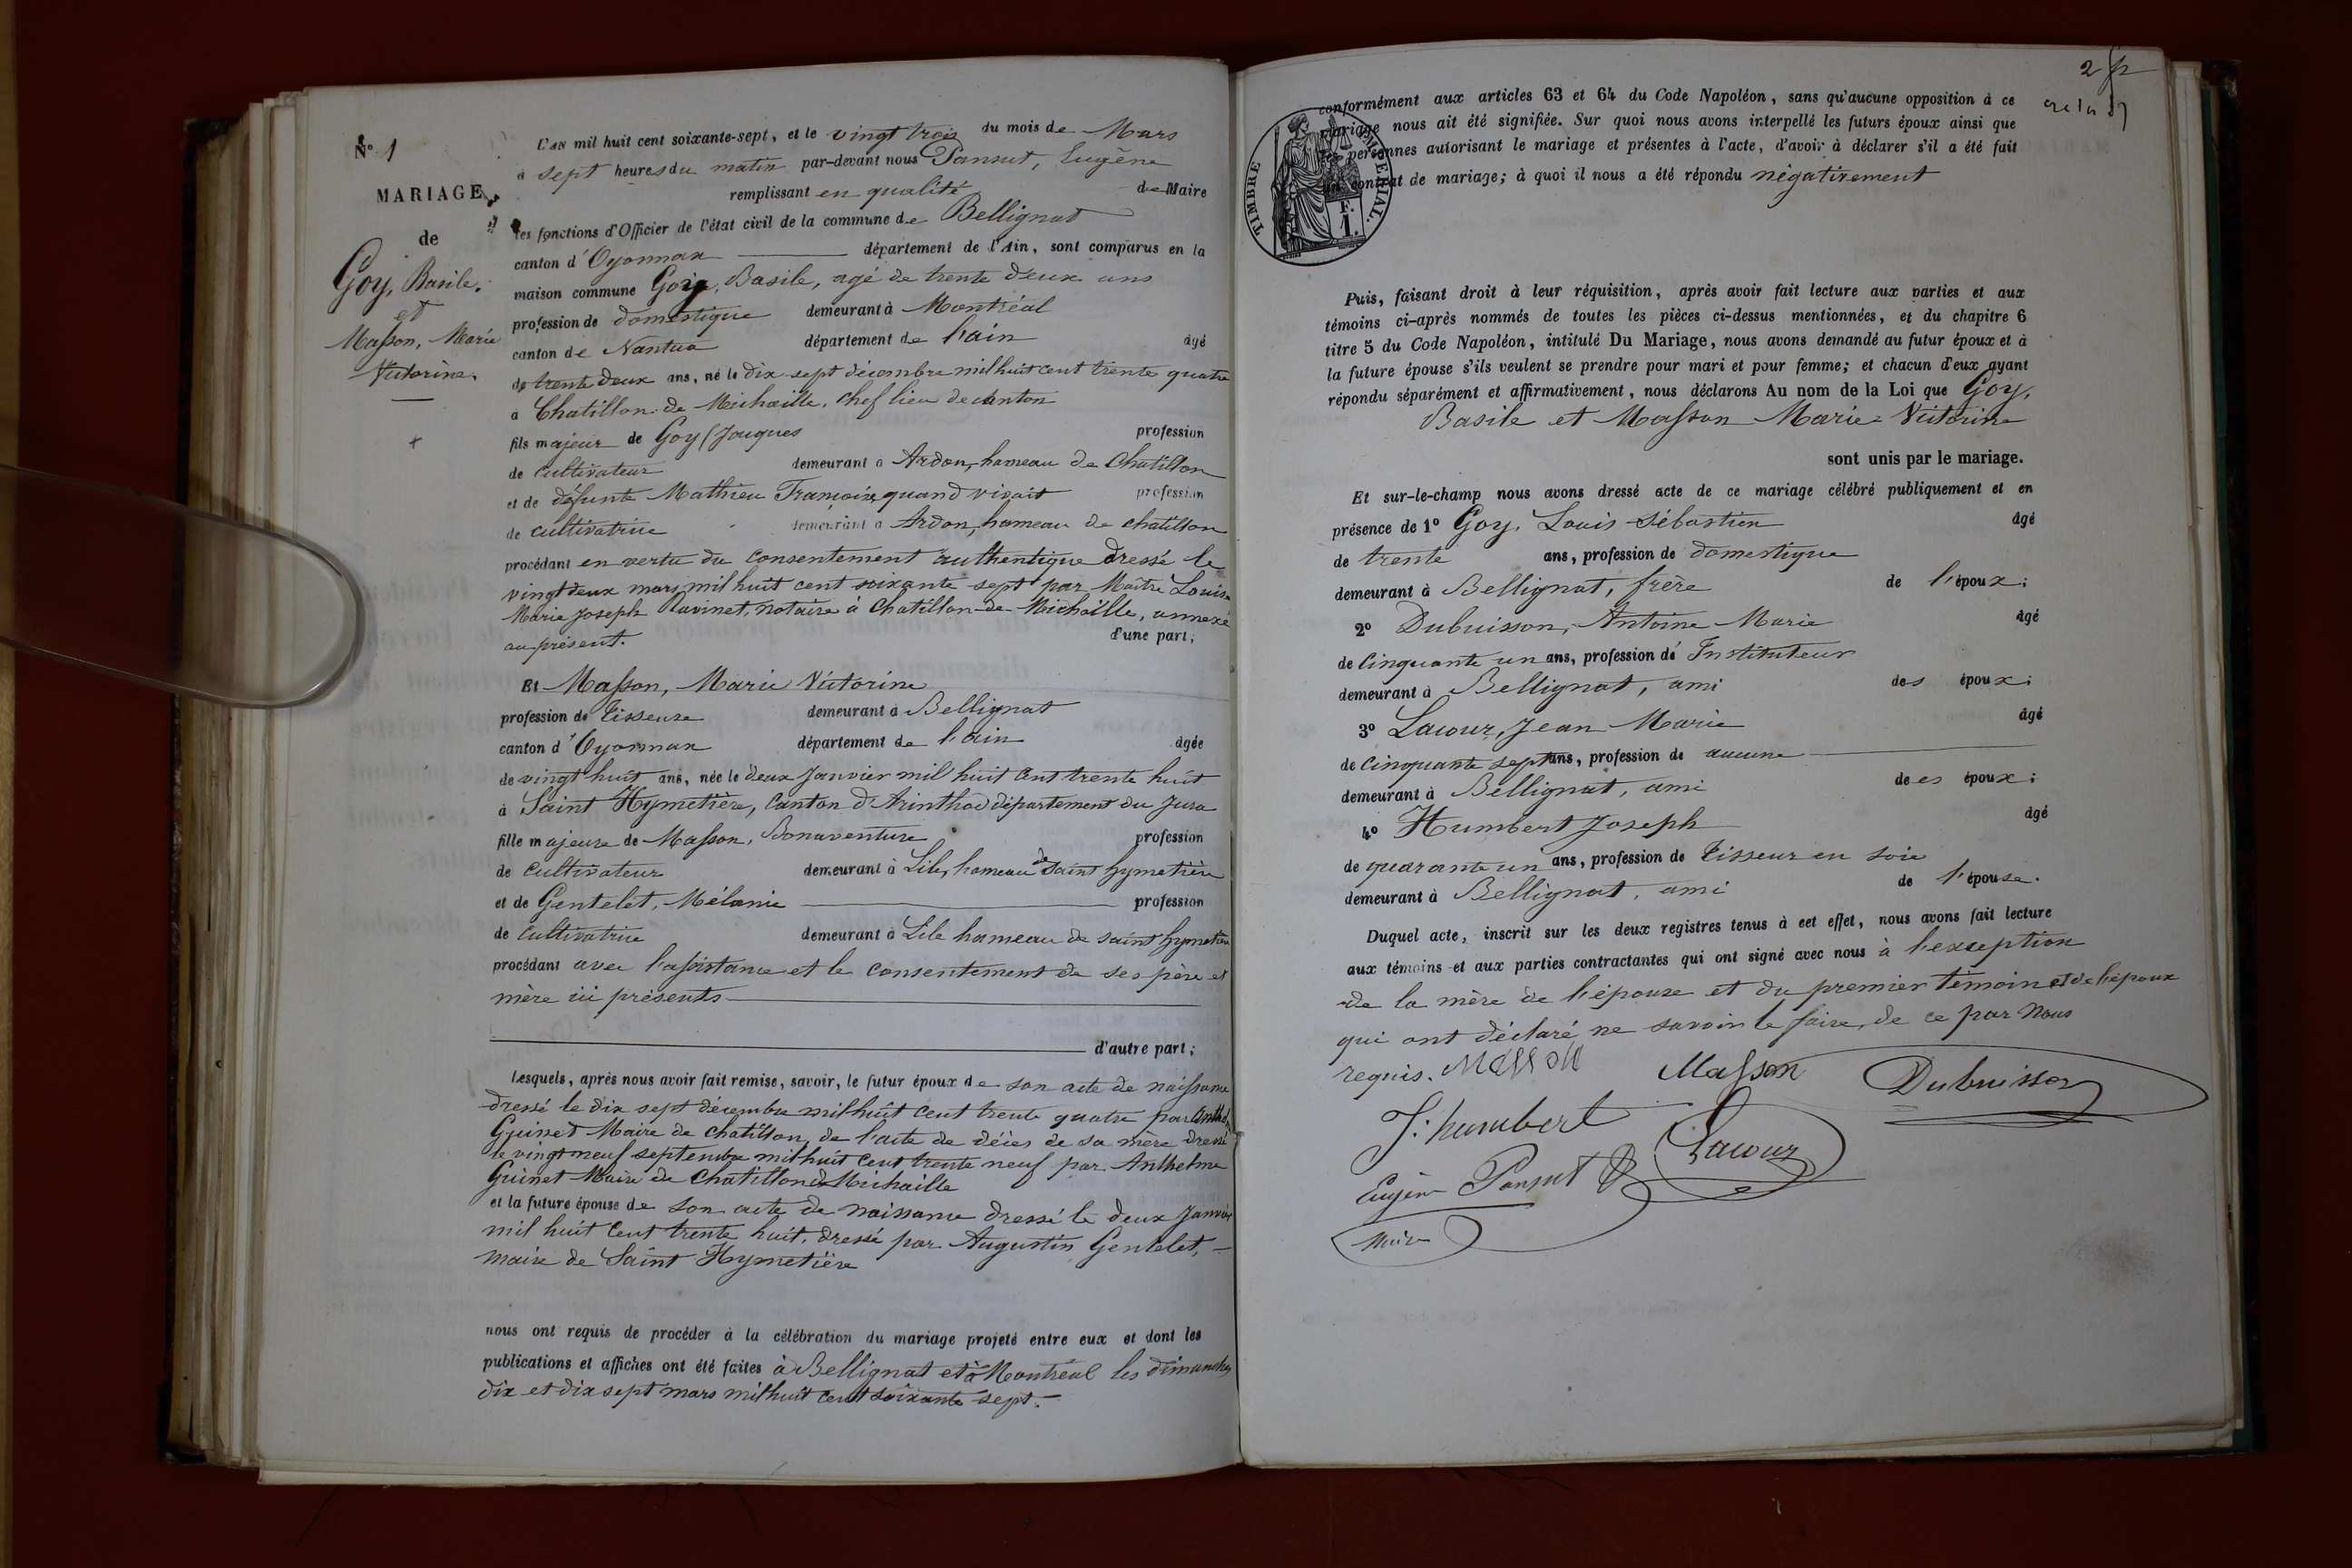 N° 1
MARIAGE
de
Goy, Basile.
et
Masson, Marie
Victorine.
L'AN mil huit cent soixante-sept, et le vingt trois du mois de Mars
à sept heures du matin par-devant nous Pansut, Eugène
remplissant en qualité de Maire
les fonctions d'Officier de l'état civil de la commune de Bellignat
canton d'Oyonnax département de l'Ain, sont comparus en la
maison commune Goy, Basile, agé de trente deux ans
profession de domestique demeurant à Montréal
canton de Nantua département de l'ain âgé
de trente deux ans, né le dix sept décembre mil huit cent trente quatre
à Chatillon de Michaille, chef lieu de canton
fils majeur de Goy Jouques profession
de cultivateur demeurant à Ardon, hameau de Chatillon
et de défunte Mathieu Françoise, quand vivait profession
de cultivatrice demeurant à Ardon, hameau de chatillon
procédant en vertu du consentement authentique dressé le
vingt deux mars mil huit cent soixante sept par Maître Louis
Marie Joseph notaire à Chatillon-de-Michaille, annexé
au présent. d'une part;
Et Masson, Marie Victorine
profession de tisseuse demeurant à Bellignat
canton d'Oyonnax département de l'ain âgée
de vingt huit ans, née le deux Janvier mil huit cent trente huit
à Saint Hymetière, canton d'Arinthod département du Jura
fille majeure de Masson, Bonaventure profession
de cultivateur demeurant à Lile, hameau de Saint hymetière
et de Gentelet, Mélanie profession
de cultivatrice demeurant à Lile hameau de saint hymetière
procédant avec l'assistance et le consentement de ses père et
mère ici présents
d'autre part;
Lesquels, après nous avoir fait remise, savoir, le futur époux de son acte de naissance
dressé le dix sept décembre mil huit cent trente quatre par Anthel
Guinet Maire de chatillon, de l'acte de décès de sa mère dressé
le vingt neuf septembre mil huit cent trente neuf par Anthelme
Guinet Maire de Chatillon de Michaille
et la future épouse de son acte de naissance dressé le deux Janvier
mil huit cent trente huit, dressé par Augustin Gentelet,
maire de Saint Hymetière
nous ont requis de procéder à la célébration du mariage projeté entre eux et dont les
publications et affiches ont été faites à Bellignat et à Montréal les dimanches
dix et dix sept mars mil huit cent soixante sept.
2
TIMBRE IMPERIAL.
F.
1.
conformément aux articles 63 et 64 du Code Napoléon, sans qu'aucune opposition à ce
mariage nous ait été signifiée. Sur quoi nous avons interpellé les futurs époux ainsi que
les personnes autorisant le mariage et présentes à l'acte, d'avoir à déclarer s'il a été fait
un contrat de mariage; à quoi il nous a été répondu négativement
Puis, faisant droit à leur réquisition, après avoir fait lecture aux parties et aux
témoins ci-après nommés de toutes les pièces ci-dessus mentionnées, et du chapitre 6
titre 5 du Code Napoléon, intitulé Du Mariage, nous avons demandé au futur époux et à
la future épouse s'ils veulent se prendre pour mari et pour femme; et chacun d'eux ayant
répondu séparément et affirmativement, nous déclarons Au nom de la Loi que Goy,
Basile et Masson Marie Victorine
sont unis par le mariage.
Et sur-le-champ nous avons dressé acte de ce mariage célébré publiquement et en
présence de 1° Goy, Louis Sébastien âgé
de trente ans, profession de domestique
demeurant à Bellignat, frère de l'époux;
2° Dubuisson, Antoine Marie âgé
de cinquante un ans, profession de Instituteur
demeurant à Bellignat, ami des époux;
3° Lacour, Jean Marie âgé
de cinquante sept ans, profession de aucune
demeurant à Bellignat, ami de es époux;
4° Humbert Joseph âgé
de quarante un ans, profession de tisseur en soie
demeurant à Bellignat, ami de l'épouse.
Duquel acte, inscrit sur les deux registres tenus à cet effet, nous avons fait lecture
aux témoins et aux parties contractantes qui ont signé avec nous à l'exception
de la mère de l'épouse et du premier témoin et de l'époux
qui ont déclaré ne savoir le faire, de ce par nous
requis. Masson Masson Dubuisson
J. humbert Lacour
Eugène Pansut
Maire